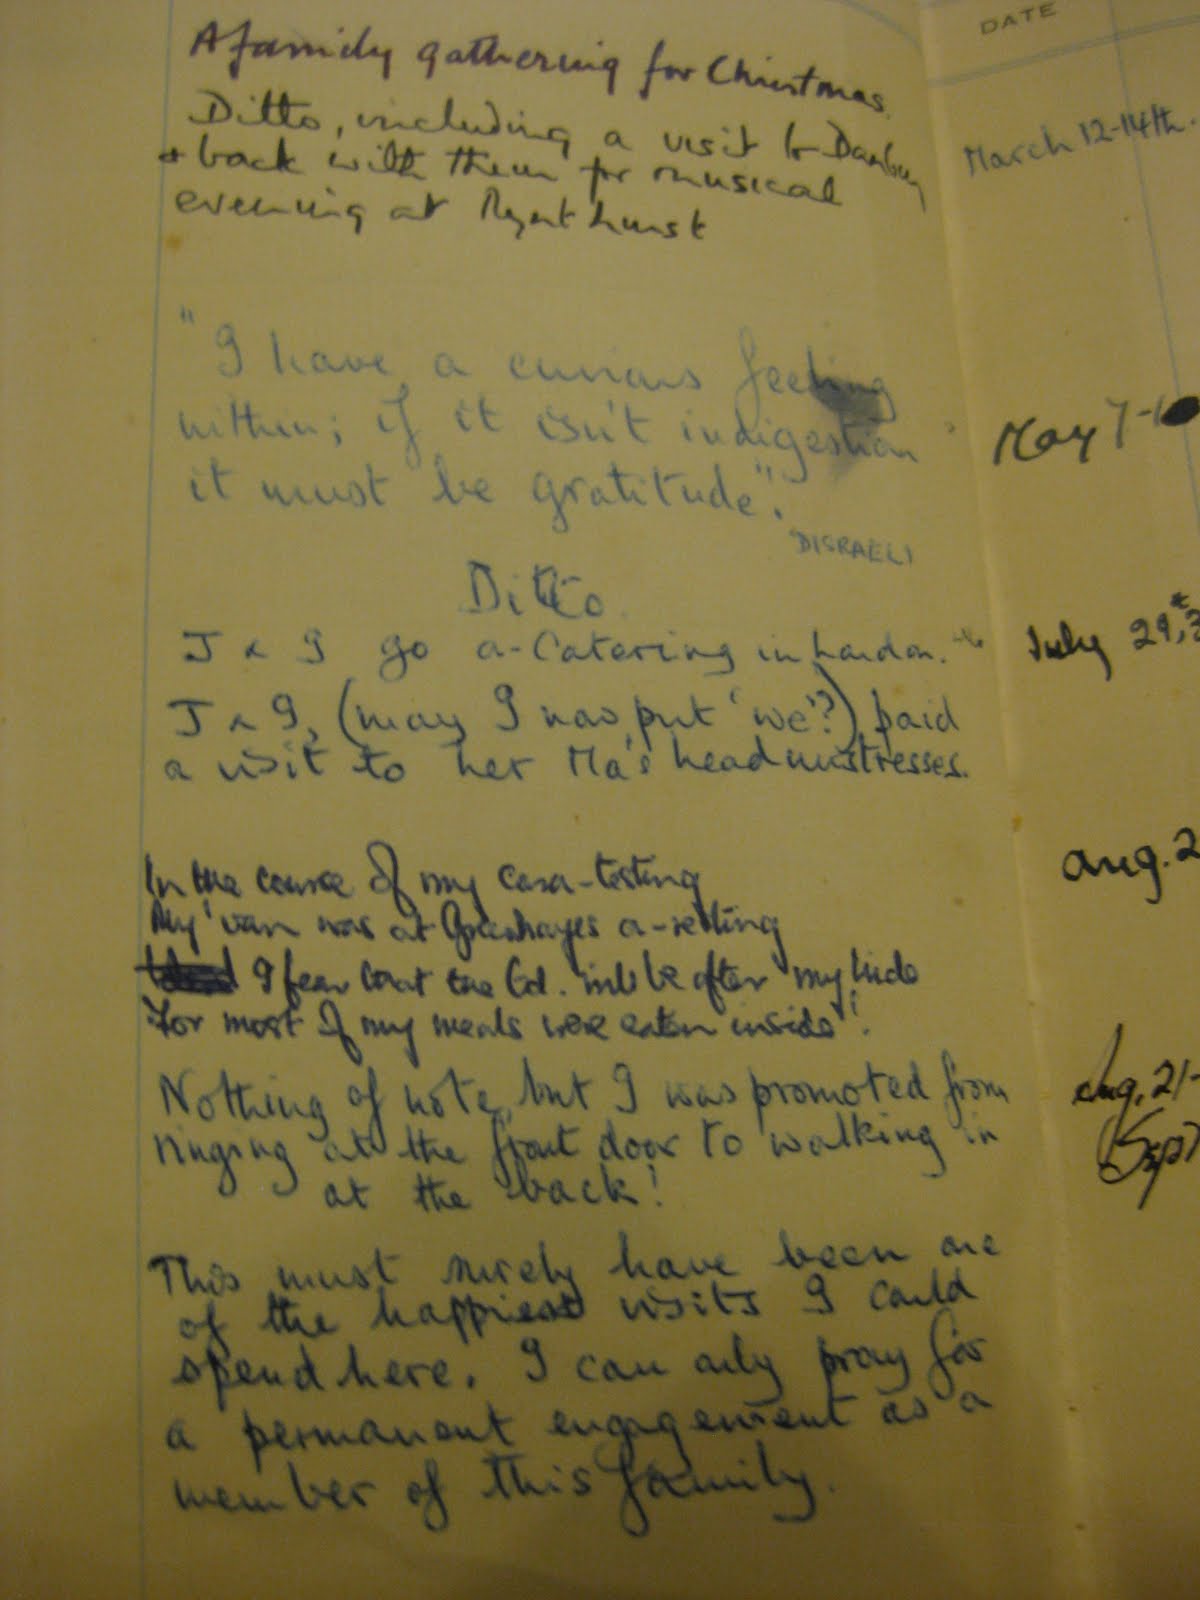 A family gathering for Christmas.
Ditto, including a visit to Danbury
& back with them for musical
evening at hurst
"I have a curious feeling
within; if it isn't indigestion
it must be gratitude".
DISRAELI
Ditto
J & I go a-Catering in London.
J & I, (may I now put 'we'?) paid
a visit to her Ma's headmistresses.
In the course of my casa-testing
My 'van was at Greenhayes a-resting
I fear that the Cd. will be after my hide
For most of my meals were eaten inside!
Nothing of note, but I was promoted from
ringing at the front door to walking in
at the back!
This must surely have been one
of the happiest visits I could
spend here. I can only pray for
a permanent engagement as a
member of this family.
DATE
March 12-14th.
May 7-1
July 29,
Aug. 2
Aug. 21-
Sept